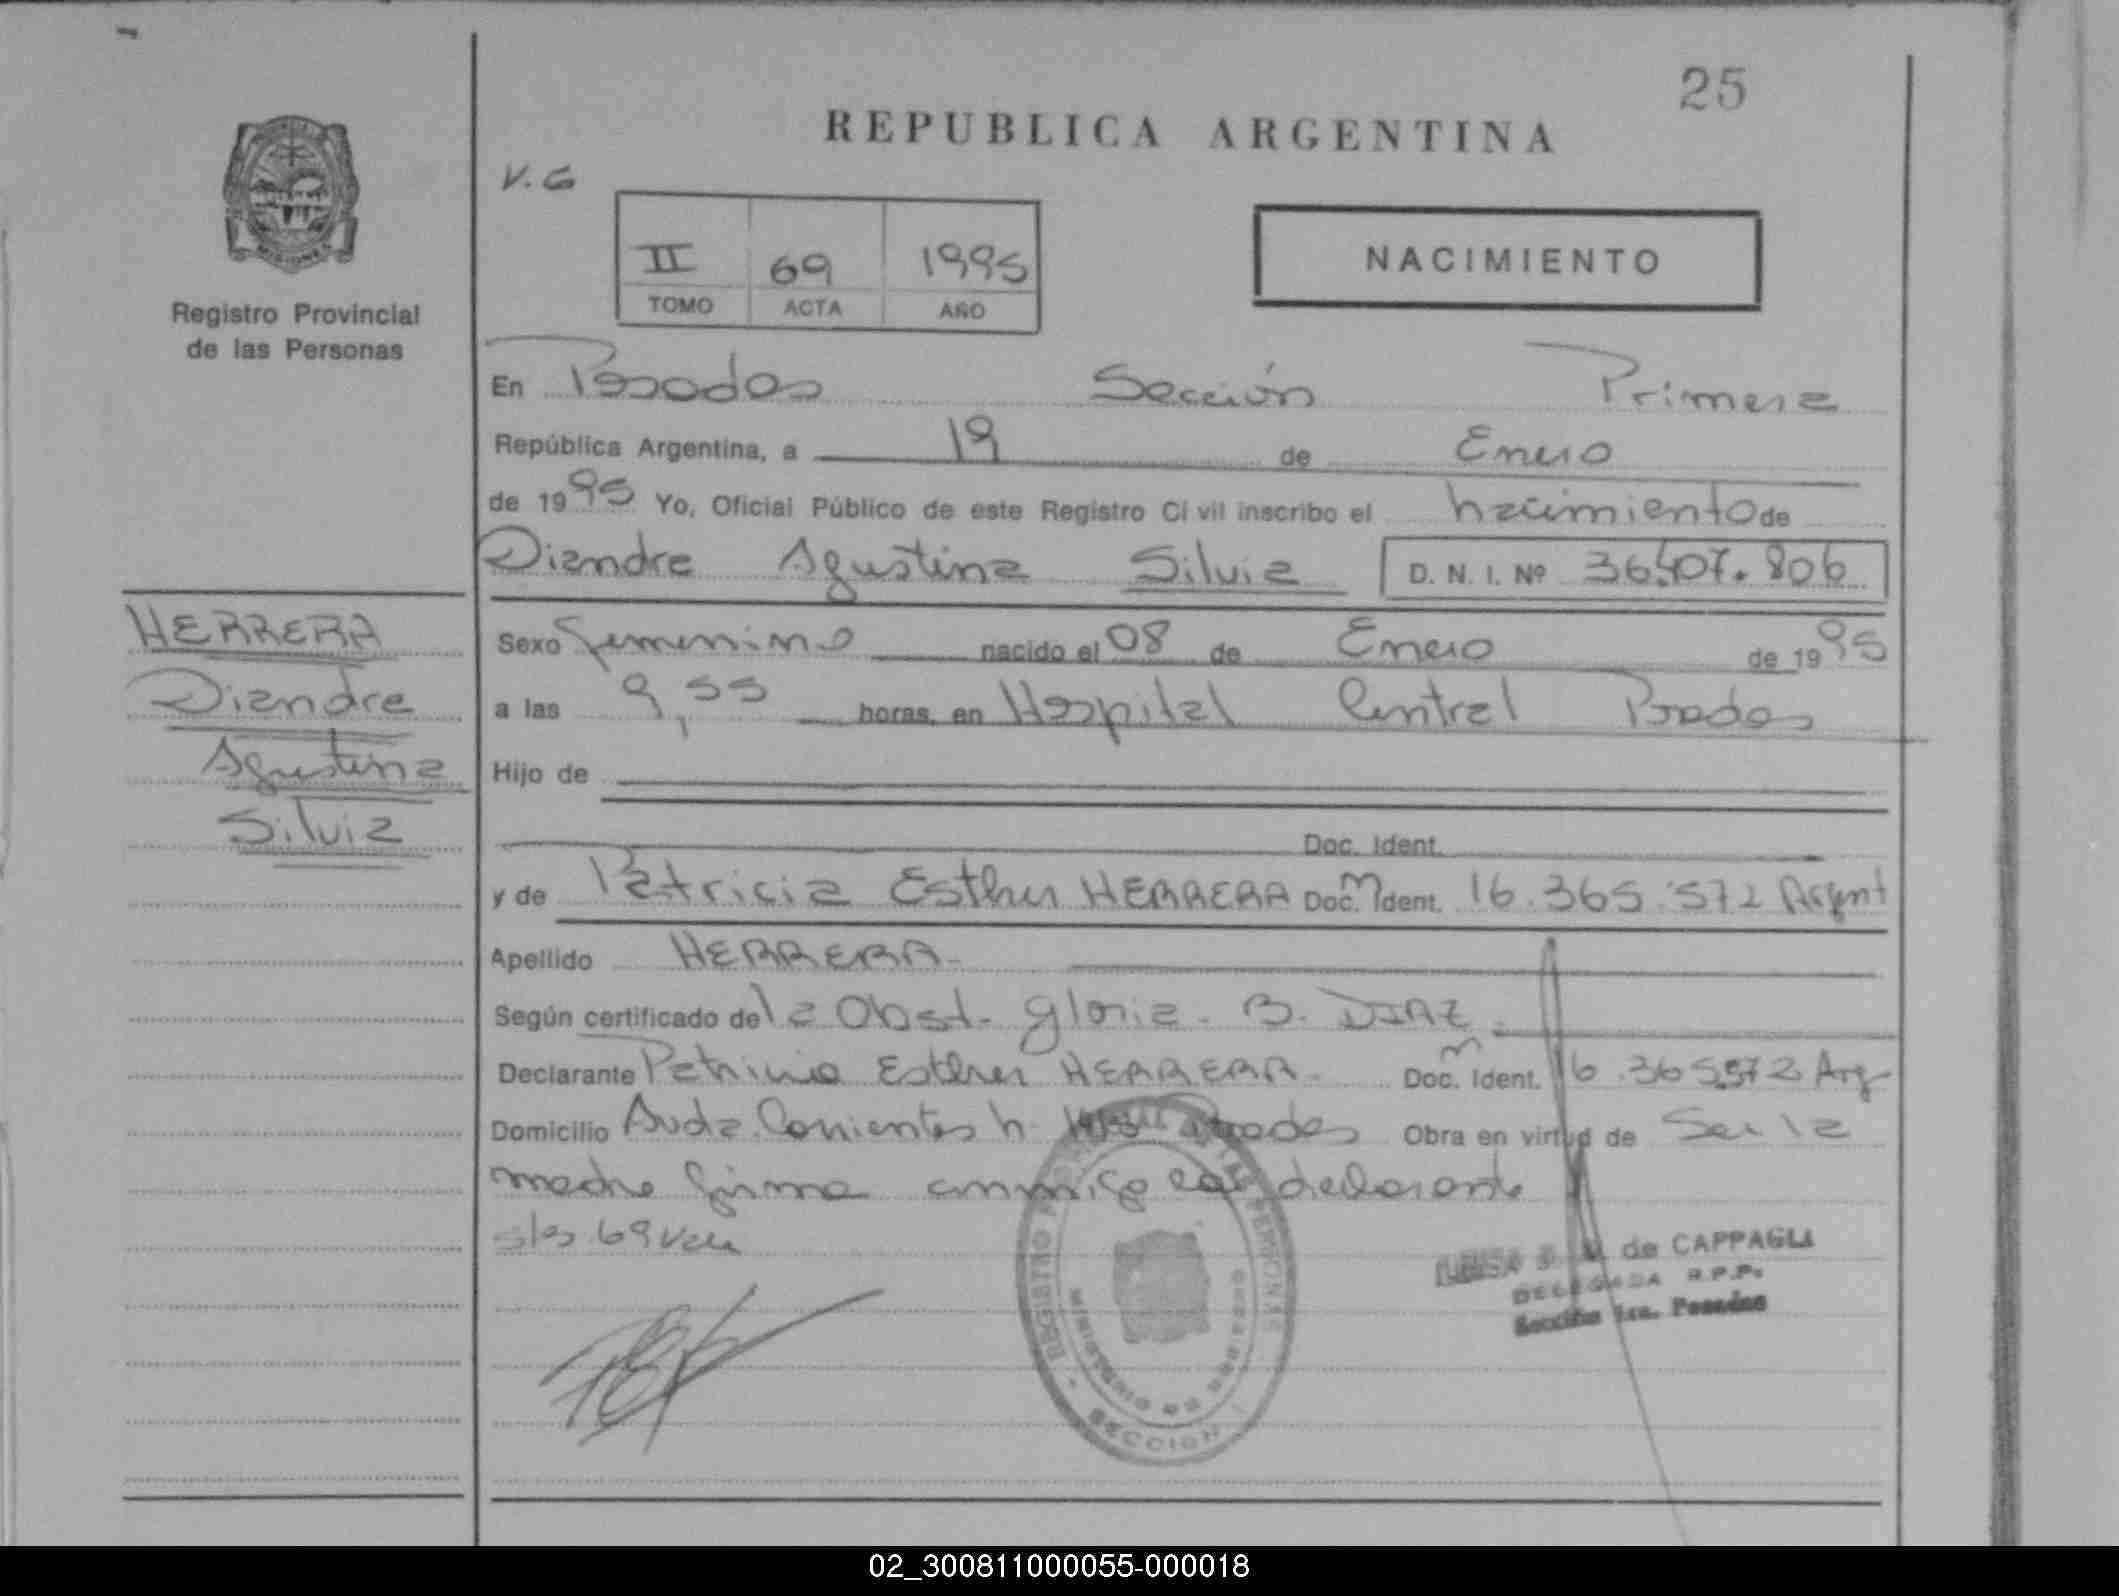 25
REPUBLICA ARGENTINA
V.G
II 69 1995
TOMO ACTA AÑO
NACIMIENTO
Registro Provincial
de las Personas
En Posadas Sección Primera
República Argentina, a 19 de Enero
de 1995 Yo, Oficial Público de este Registro Civil inscribo el nacimiento de
Diandre Agustina Silvia D. N. I. Nº 36.407.806
HERRERA
Diandre
Agustina
Silvia
Sexo femenino nacido el 08 de Enero de 1995
a las 9,55 horas, en Hospital Central Posadas
Hijo de
Doc. Ident.
y de Patricia Esther HERRERA Doc. m Ident. 16.365.572 Argent
Apellido HERRERA
Según certificado de la Obst. Gloria B. DIAZ
Declarante Patricia Esther HERRERA Doc. m Ident. 16.365.572 Arg
Domicilio Avda. Corrientes n Posadas Obra en virtud de Ser la
madre firma conmigo la declarante
s/as 69 Vale
de CAPPAGLI
DELEGADA R.P.P.
Sección 1ra. Posadas
REGISTRO PERSONAS
MINISTERIO DE GOBIERNO
SECCION 1
02_300811000055-000018